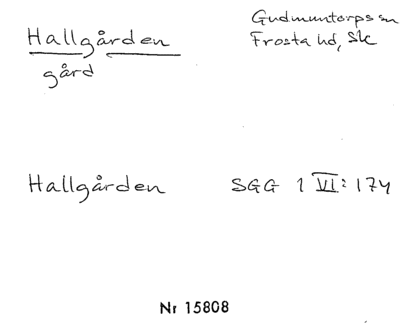 Hallgården
gård
Gudmuntorps sn
Frosta hd, Sk
Hallgården SGG 1 VI: 174
Nr 15808